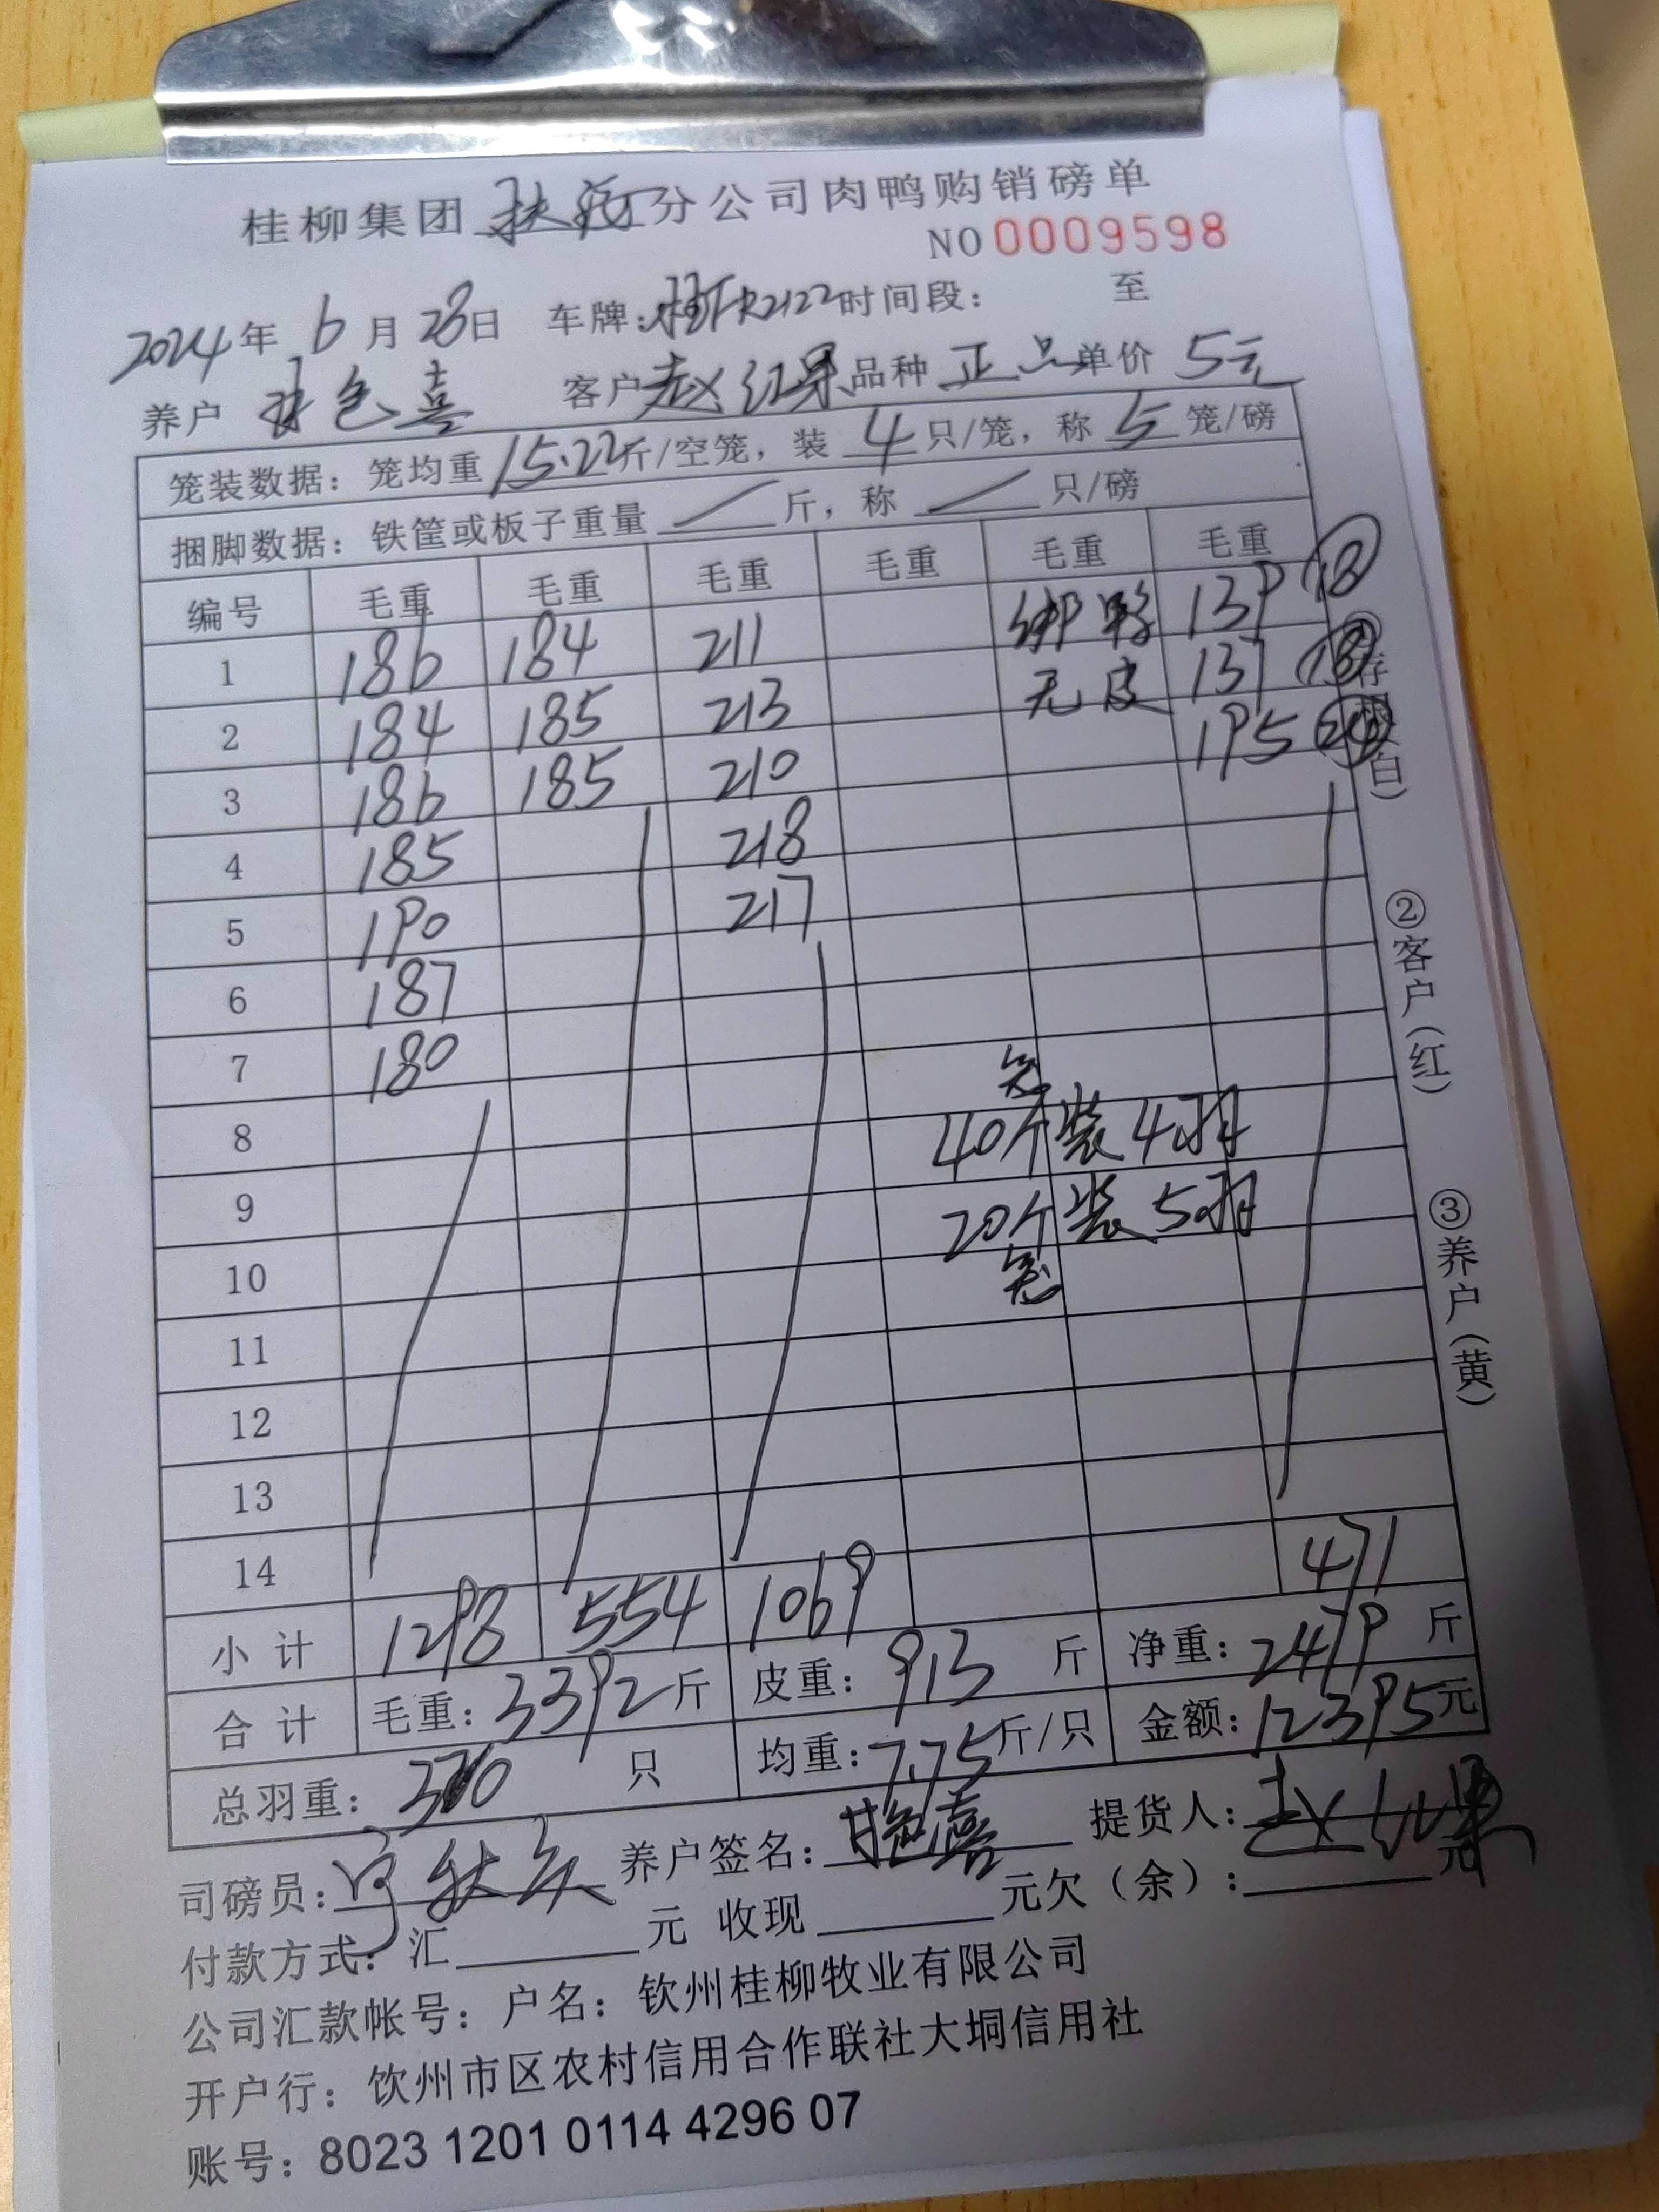 桂柳集团 分公司肉鸭购销磅单
NO 0009598
2024年 6月28日 车牌: R2122 时间段: 至
养户 色喜 客户 赵红果 品种 正品 单价 5元
笼装数据: 笼均重 15.22斤/空笼, 装 4 只/笼, 称 5 笼/磅
捆脚数据: 铁筐或板子重量 / 斤, 称 / 只/磅
编号 毛重 毛重 毛重 毛重 毛重 毛重
1 186 184 211 绑 139 18
2 184 185 213 无皮 137 18
3 186 185 210 195
4 185 218
5 190 217
6 187
7 180
笼
8 40个装4羽
9 20个装5羽
笼
10
11
12
13
14 471
小计 1298 554 1069
合计 毛重: 3392斤 皮重: 913 斤 净重: 2479 斤
总羽重: 只 均重: 7.75斤/只 金额: 12395元
司磅员: 养户签名: 提货人: 赵红果
付款方式: 汇 元 收现 元欠(余): 元
公司汇款帐号: 户名: 钦州桂柳牧业有限公司
开户行: 钦州市区农村信用合作联社大垌信用社
账号: 8023 1201 0114 4296 07
白)
②客户(红)
③养户(黄)